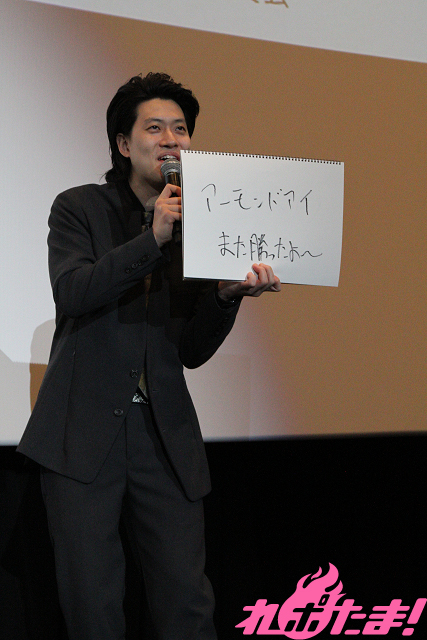 アーモンドアイ
また勝ったよ〜
れポたま!